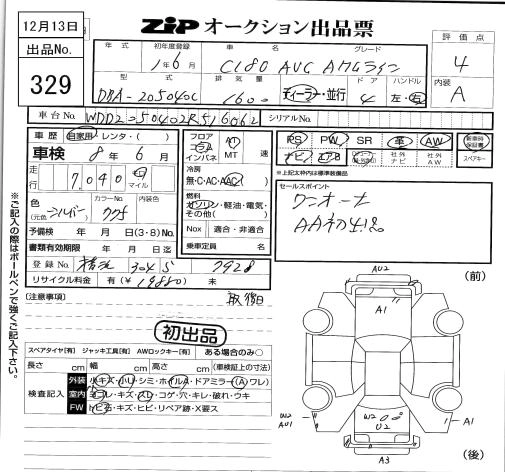 12月13日
ZIP オークション出品票
出品No.
329
年式 初年度登録 車名 グレード
1年6月 C180 AVC
型式 排気量 ドア ハンドル
DBA-205040C 1600 ディーラー・並行 4 左・右
評価点
4
内装
A
車台No. WDD2050402R516062 シリアルNo.
車歴 自家用・レンタ・( )
車検 8年6月
走行 7,040 キロ マイル
色 (元色) シルバー カラーNo. 775 内装色
予備検 年 月 日(3・8)No.
書類有効期限 年 月 日迄
登録No. 304 7928
リサイクル料金 有(¥19880) 未
フロア コラム インパネ AT MT 速
冷房
無・C・AC・AAC
燃料
ガソリン・軽油・電気・その他( )
Nox 適合・非適合
乗車定員 名
PS PW SR 革 AW
ナビ エアB 社外ナビ 社外AW
新車時保証書
スペアキー
※上記太枠内は標準装備品
セールスポイント
ワンオーナ
[注意事項]
初出品
スペアタイヤ[有] ジャッキ工具[有] AWロックキー[有] ある場合のみ○
長さ cm 幅 cm 高さ cm (車検証上の寸法)
検査記入
外装 小キズ・小U・シミ・ホイルA・ドアミラー(A・ワレ)
室内 ヨゴレ・キズ・スレ・コゲ・穴・キレ・破れ・ウキ
FW トビ石・キズ・ヒビ・リペア跡・X要ス
※ご記入の際はボールペンで強くご記入下さい。
(前)
AU2
A1
W2
AU1
W2
U2
A1
A3
(後)